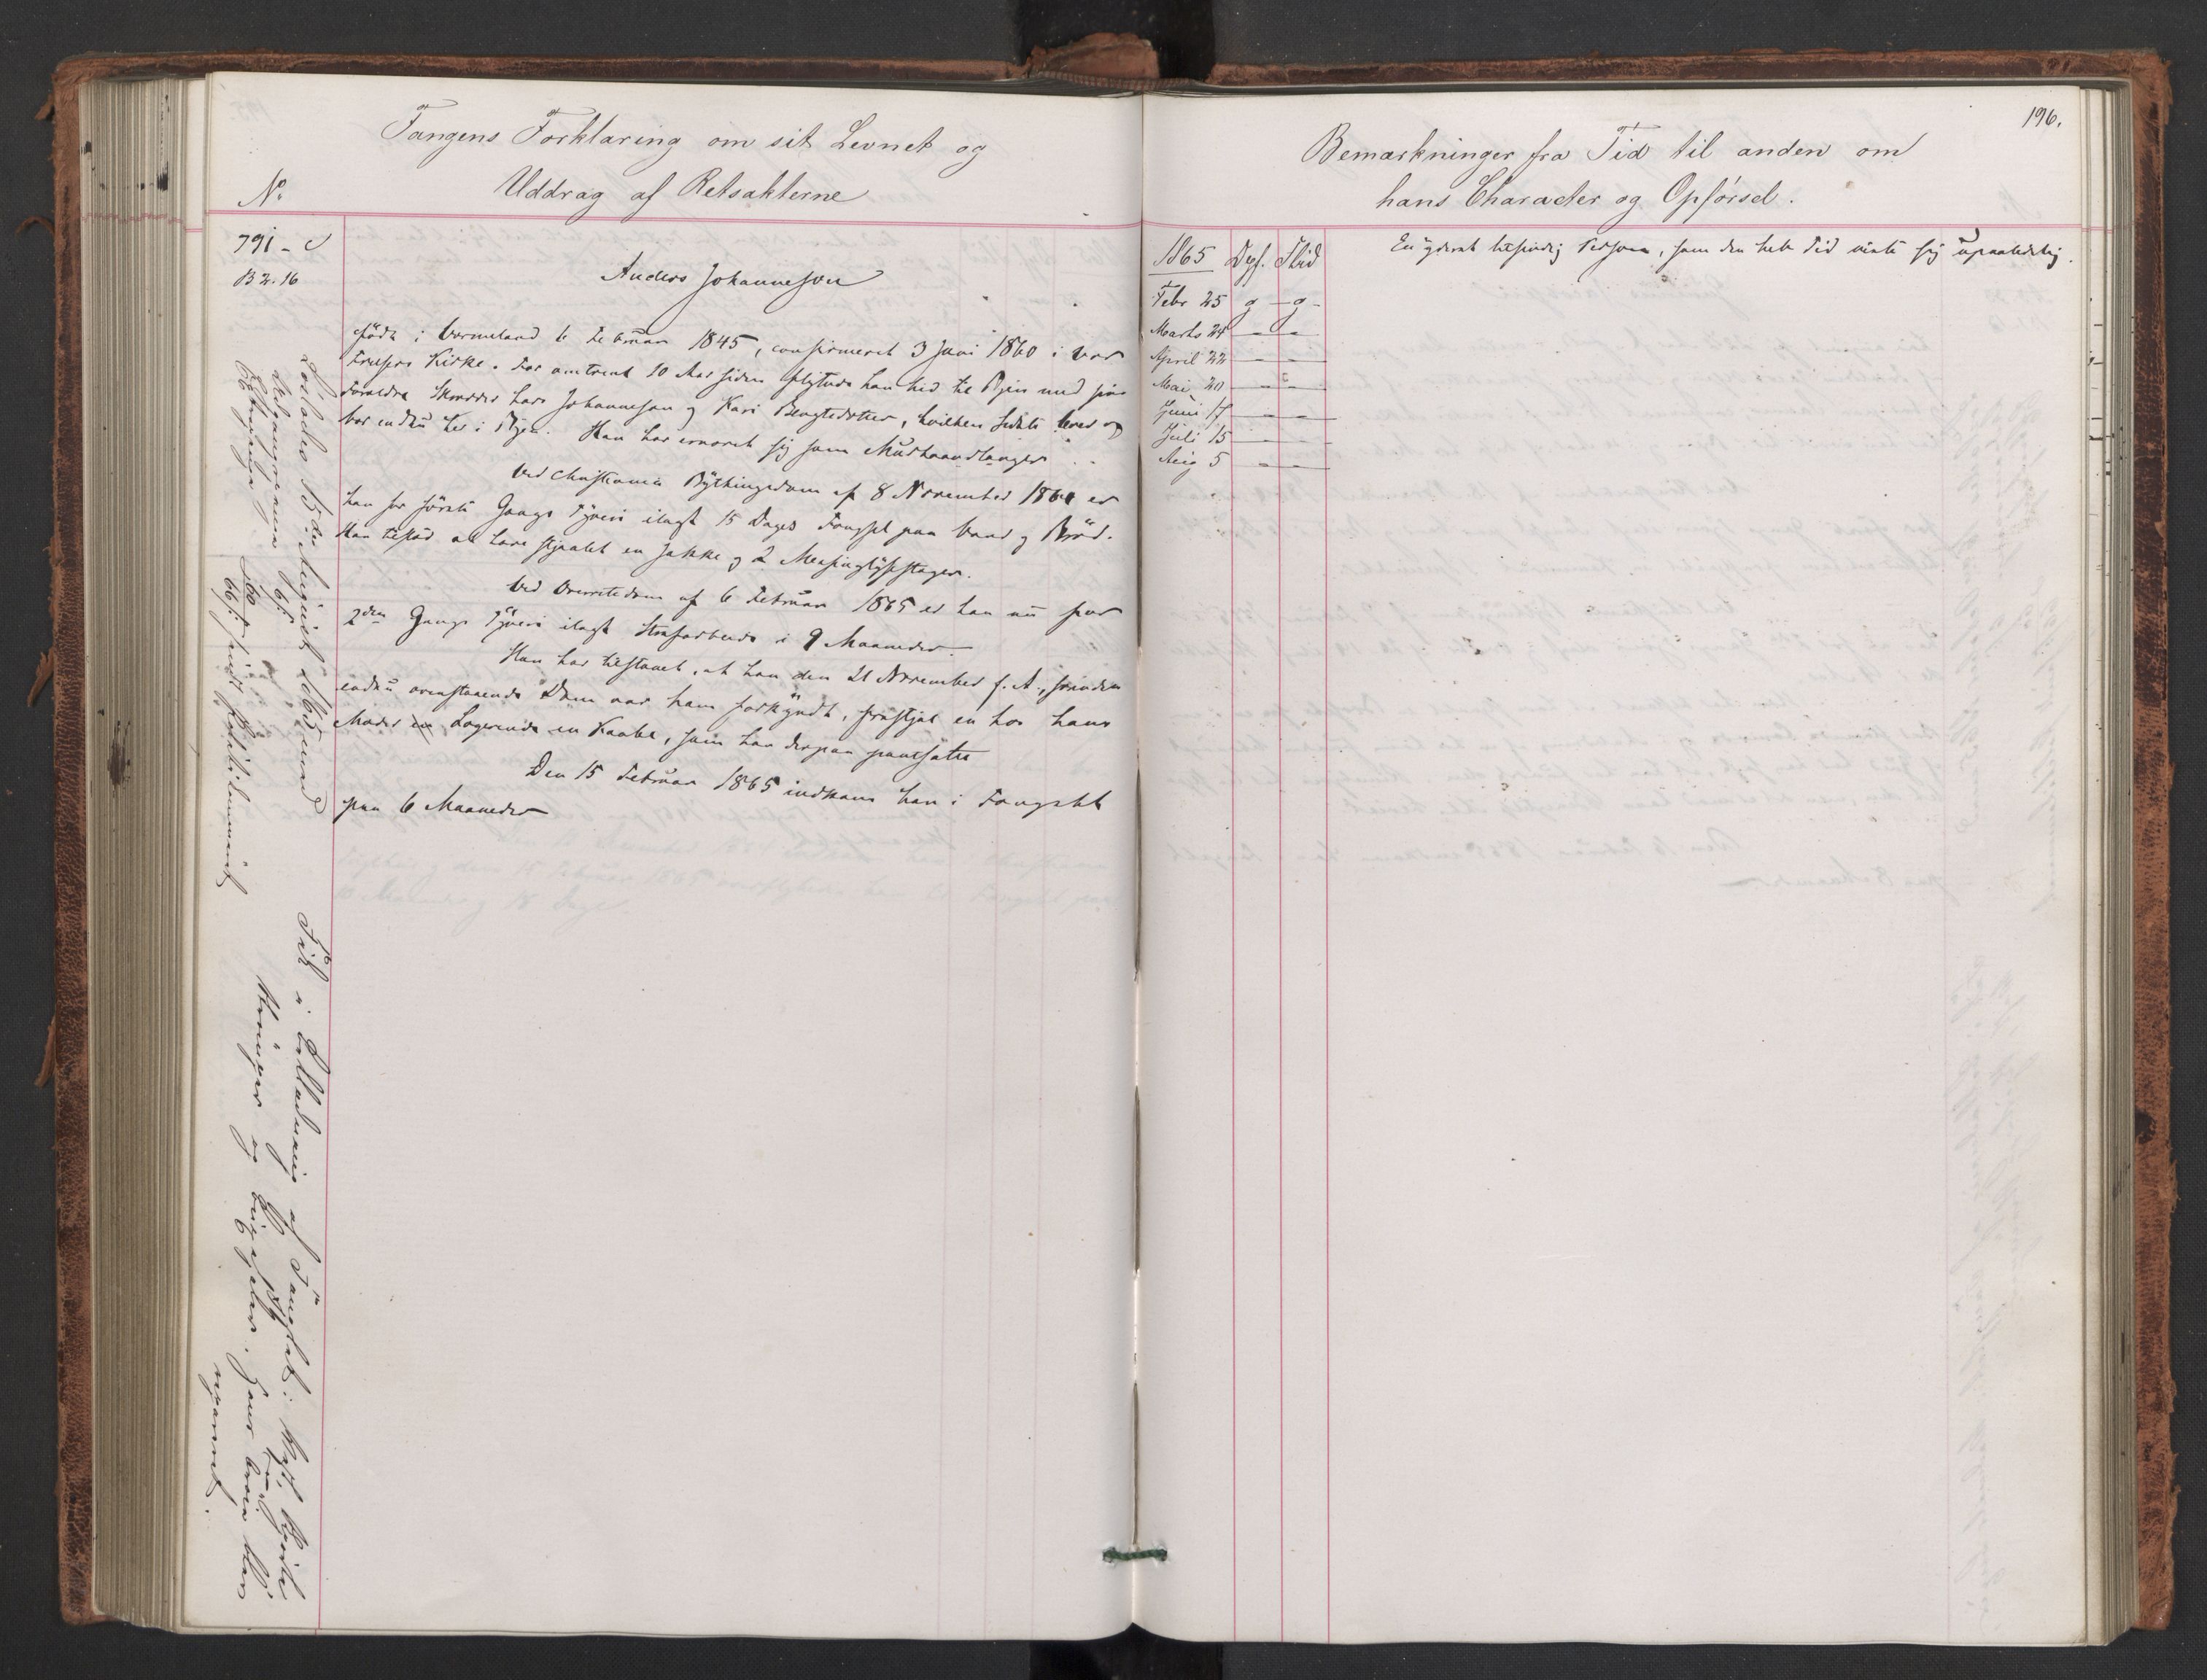 Fangens Forklaring om sit Levnet og
No
Uddrag af Retsakterne
791 - C
B 2. 16
Anders Johannesen
født i Vermeland 6 Februar 1845, confirmeret 3 Juni 1860 i Vor
Frelsers Kirke. For omtrent 10 Aar siden flyttede han hid til Byen med sine
Forældre Skrædder Lars Johannesen og Kari Bengtsdatter, hvilken sidste lever og
bor endnu her i Byen. Han har ernæret sig som Murhaandlanger.
Ved Christiania Bythingsdom af 8 November 1864 er
han for første Gangs Tyveri ilagt 15 Dages Fængsel paa Vand og Brød.
Han tilstod at have stjaalet en Jakke og 2 Messinglysestager.
Ved Overretsdom af 6 Februar 1865 er han nu for
2den Gangs Tyveri ilagt Strafarbeide i 9 Maaneder.
Han har tilstaaet, at han den 21 November f. A., førinden
endnu ovenstaaende Dom var ham forkyndt, frastjal en hos hans
Moder Logerende en Kaabe, som han derpaa pantsatte
Den 15 Februar 1865 indkom han i Fængslet
paa 6 Maaneder
Løslades 15de August 1865 med
60
66 s:
Fik i af Fængslet:
og Hans blev
196.
Bemærkninger fra Tid til anden om
hans Character og Opførsel.
1865 Opf. Flid
Febr 25 g - g -
Marts 24 - -
April 22 - -
Mai 20 - -
Juni 17 - -
Juli 15 - -
Aug 5 - -
En yderst letsindig Person, som den hele Tid viste sig upaalidelig.